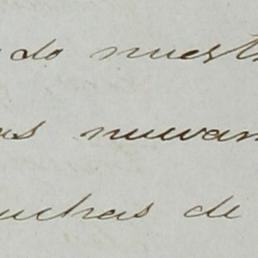 do nuest
us nuevam
uchas de